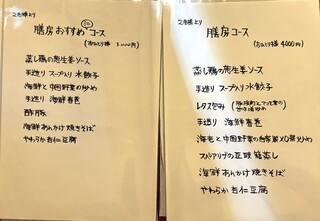 2名様より
膳房おすすめコース
(お1人様 3,000円)
蒸し鶏の葱生姜ソース
手造りスープ入り水餃子
海鮮と中国野菜の炒め
手造り 海鮮春巻
酢豚
海鮮あんかけ焼きそば
やわらか杏仁豆腐
2名様より
膳房コース
(お1人様 4000円)
蒸し鶏の葱生姜ソース
手造り スープ入り水餃子
レタス包み
手造り 海鮮春巻
海老と中国野菜の自家製XO醤炒め
スペアリブの豆豉蒸し
海鮮あんかけ焼きそば
やわらか杏仁豆腐